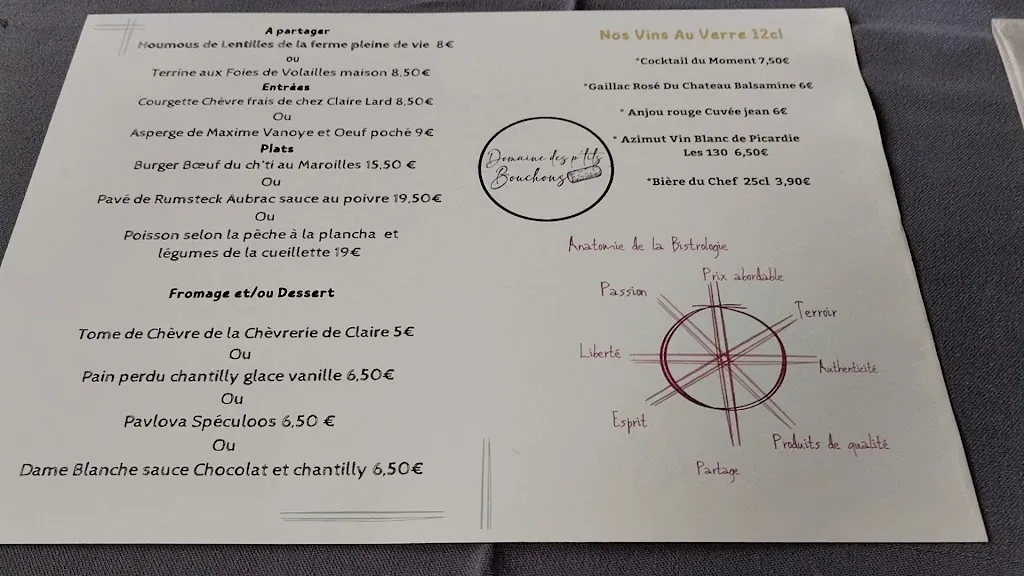 A partager
Houmous de Lentilles de la ferme pleine de vie 8€
ou
Terrine aux Foies de Volailles maison 8,50€
Entrées
Courgette Chèvre frais de chez Claire Lard 8,50€
Ou
Asperge de Maxime Vanoye et Oeuf poché 9€
Plats
Burger Bœuf du ch'ti au Maroilles 15,50 €
Ou
Pavé de Rumsteck Aubrac sauce au poivre 19,50€
Ou
Poisson selon la pèche à la plancha et
légumes de la cueillette 19€
Fromage et/ou Dessert
Tome de Chèvre de la Chèvrerie de Claire 5€
Ou
Pain perdu chantilly glace vanille 6,50€
Ou
Pavlova Spéculoos 6,50 €
Ou
Dame Blanche sauce Chocolat et chantilly 6,50€
Domaine des p'tits
Bouchons
Nos Vins Au Verre 12cl
*Cocktail du Moment 7,50€
*Gaillac Rosé Du Chateau Balsamine 6€
* Anjou rouge Cuvée jean 6€
* Azimut Vin Blanc de Picardie
Les 130 6,50€
*Bière du Chef 25cl 3,90€
Anatomie de la Bistrologie
Prix abordable
Passion
Terroir
Liberté
Authenticité
Esprit
Produits de qualité
Partage